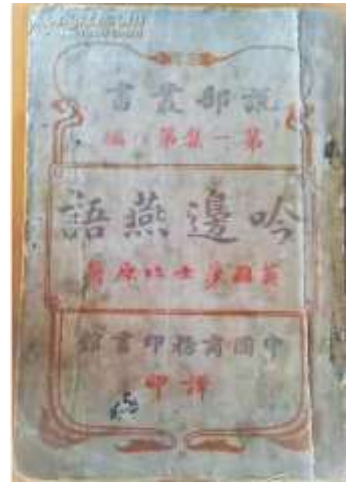 說部叢書
第一集第編
吟邊燕語
英國莎士比原著
中國商務印書館
譯印